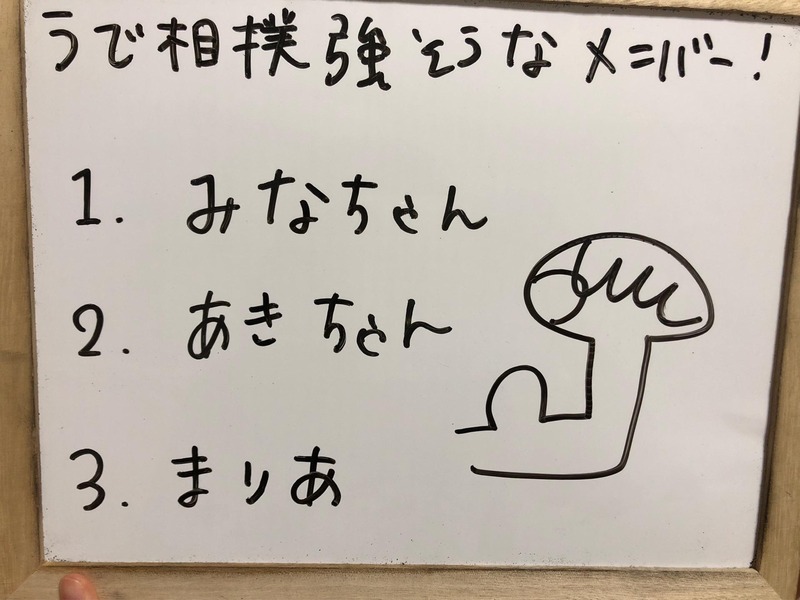 うで相撲強そうなメンバー!
1. みなちゃん
2. あきちゃん
3. まりあ